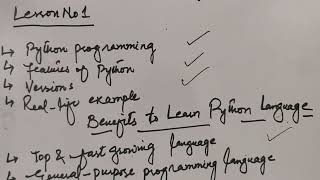 Lesson No 1
↳ Python programming
↳ features of Python
↳ Versions
↳ Real-life example
Benefits to Learn Python Language
↳ Top & fast growing language
↳ General-purpose programming language